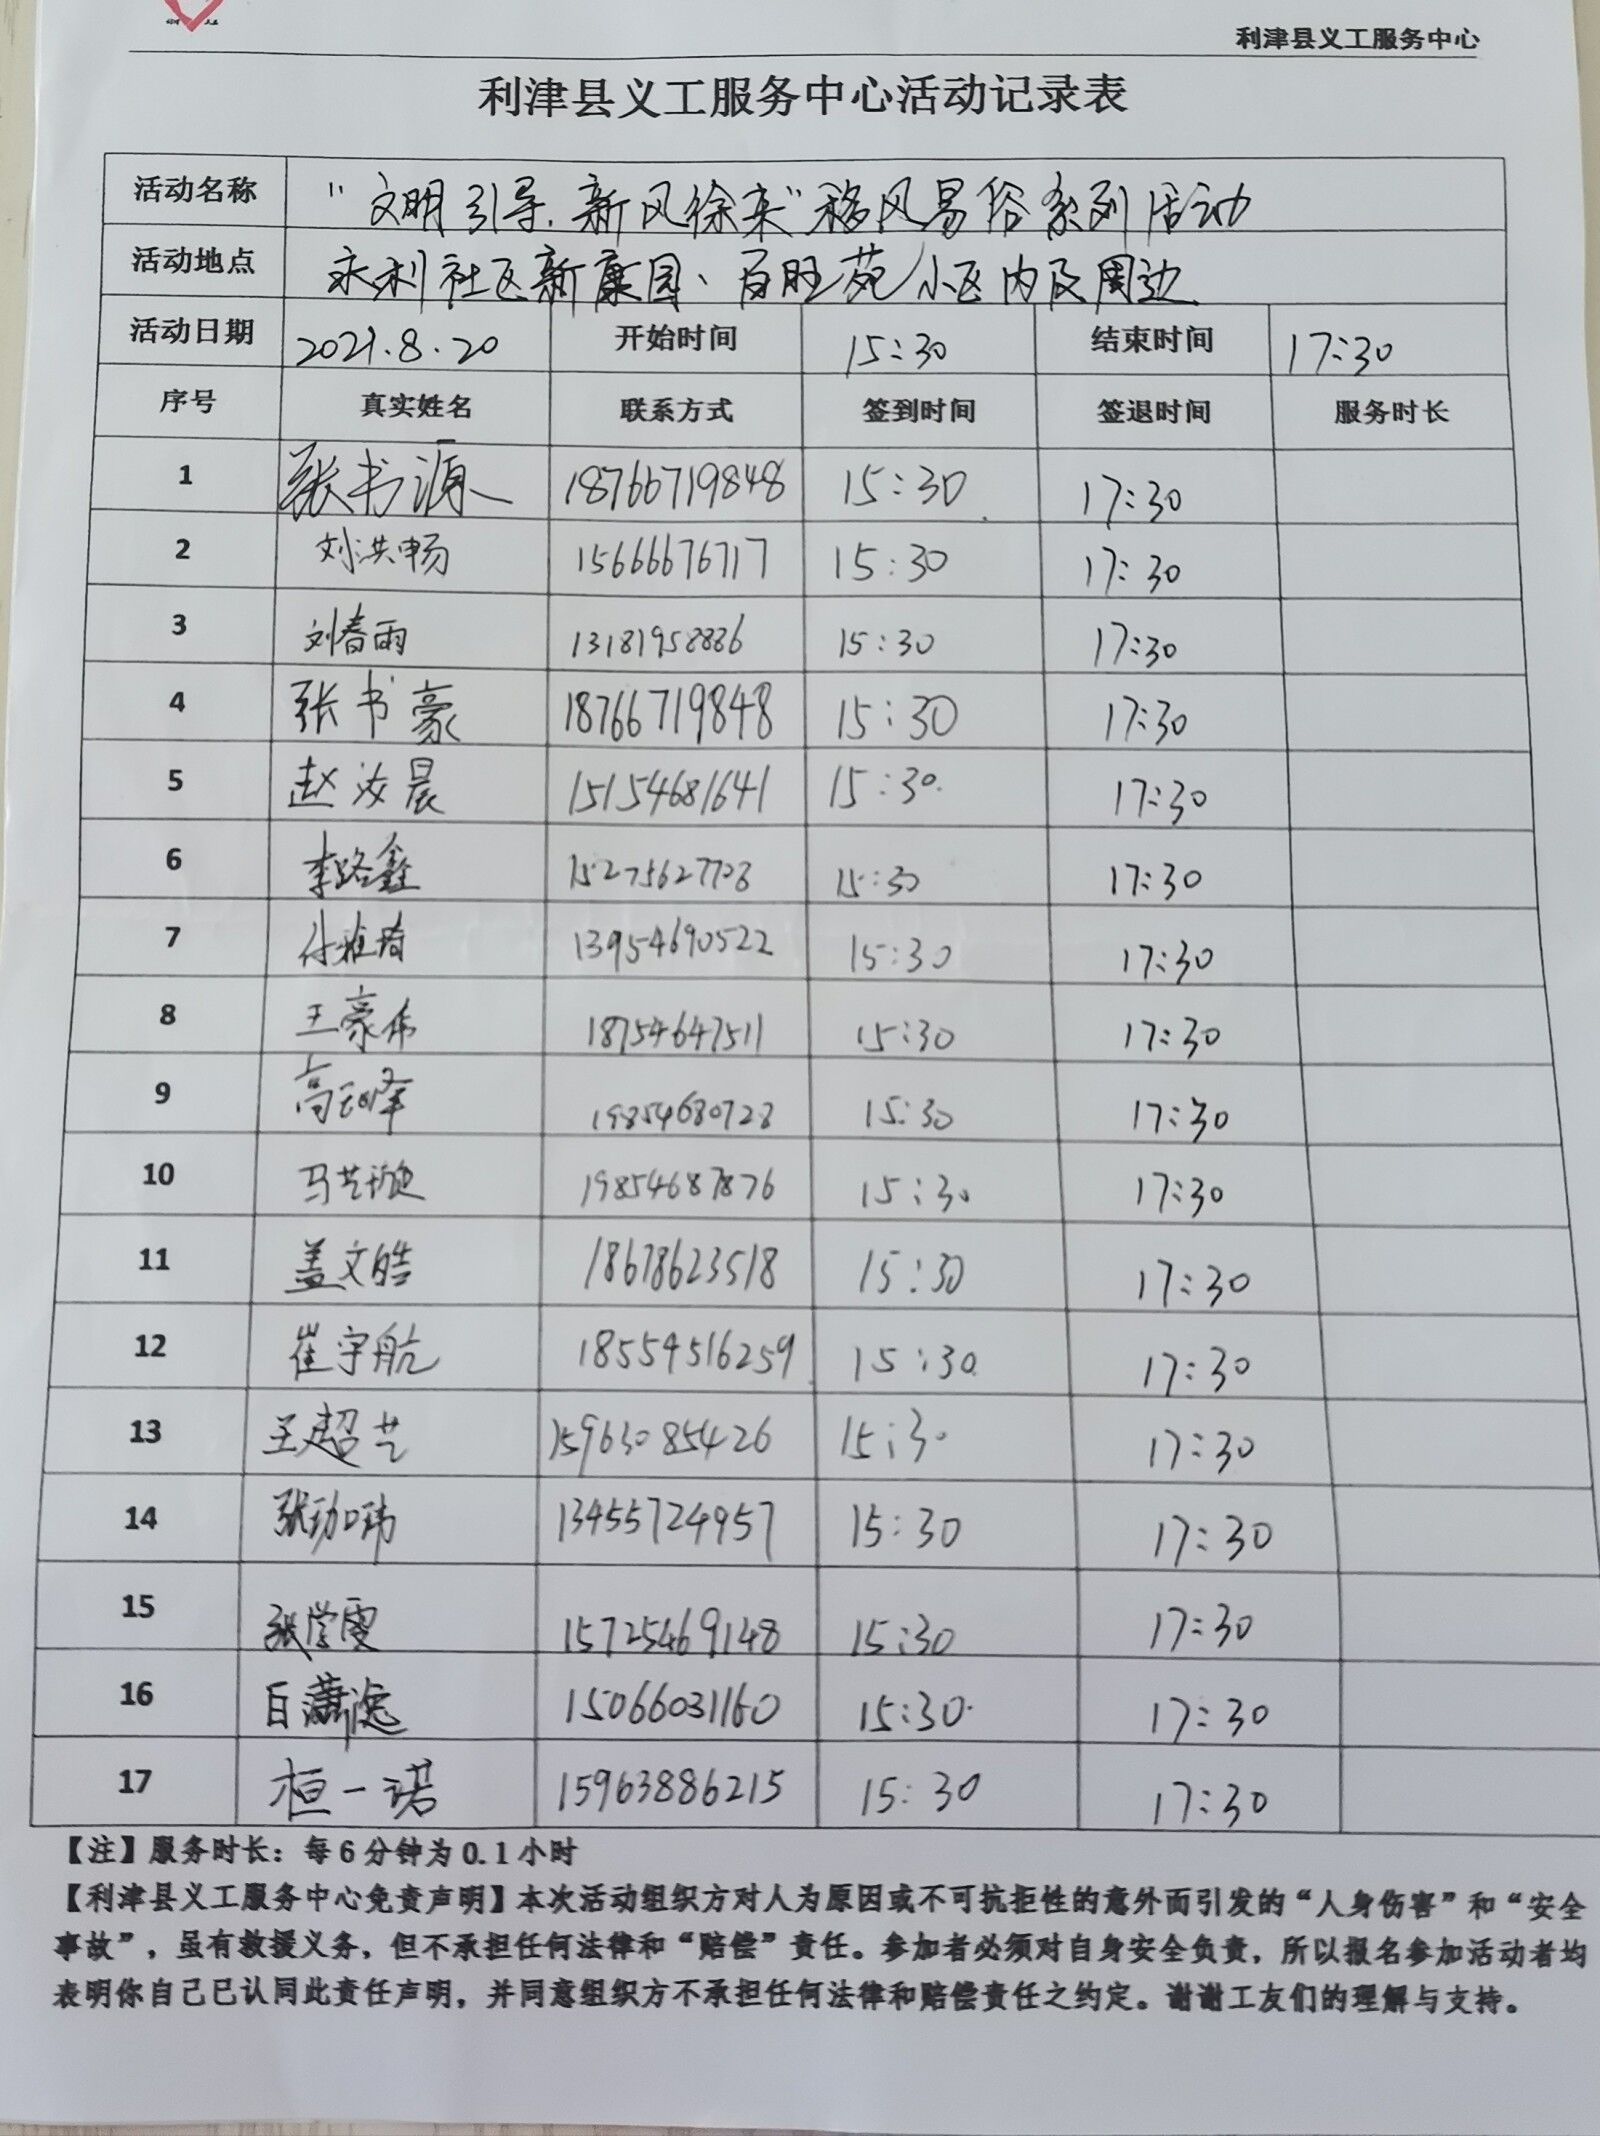 利津县义工服务中心
利津县义工服务中心活动记录表
活动名称 “文明引导,新风徐来”移风易俗系列活动
活动地点 永利社区新康园、百旺苑小区内及周边
活动日期 2021.8.20 开始时间 15:30 结束时间 17:30
序号 真实姓名 联系方式 签到时间 签退时间 服务时长
1 张书源 18766719848 15:30 17:30
2 刘洪畅 15666676717 15:30 17:30
3 刘春雨 13181958886 15:30 17:30
4 张书豪 18766719848 15:30 17:30
5 赵汝晨 15154681641 15:30 17:30
6 李路鑫 15275627728 15:30 17:30
7 付雅琦 13954690522 15:30 17:30
8 王豪伟 18754647511 15:30 17:30
9 高 峰 19854680728 15:30 17:30
10 马艺 19854687876 15:30 17:30
11 盖文皓 18678623518 15:30 17:30
12 崔宇航 18554516259 15:30 17:30
13 王超艺 15963085426 15:30 17:30
14 张珈玮 13455724957 15:30 17:30
15 张学雯 15725469148 15:30 17:30
16 白潇 15066031160 15:30 17:30
17 桓一诺 15963886215 15:30 17:30
【注】服务时长：每6分钟为0.1小时
【利津县义工服务中心免责声明】本次活动组织方对人为原因或不可抗拒性的意外而引发的“人身伤害”和“安全
事故”，虽有救援义务，但不承担任何法律和“赔偿”责任。参加者必须对自身安全负责，所以报名参加活动者均
表明你自己已认同此责任声明，并同意组织方不承担任何法律和赔偿责任之约定。谢谢工友们的理解与支持。